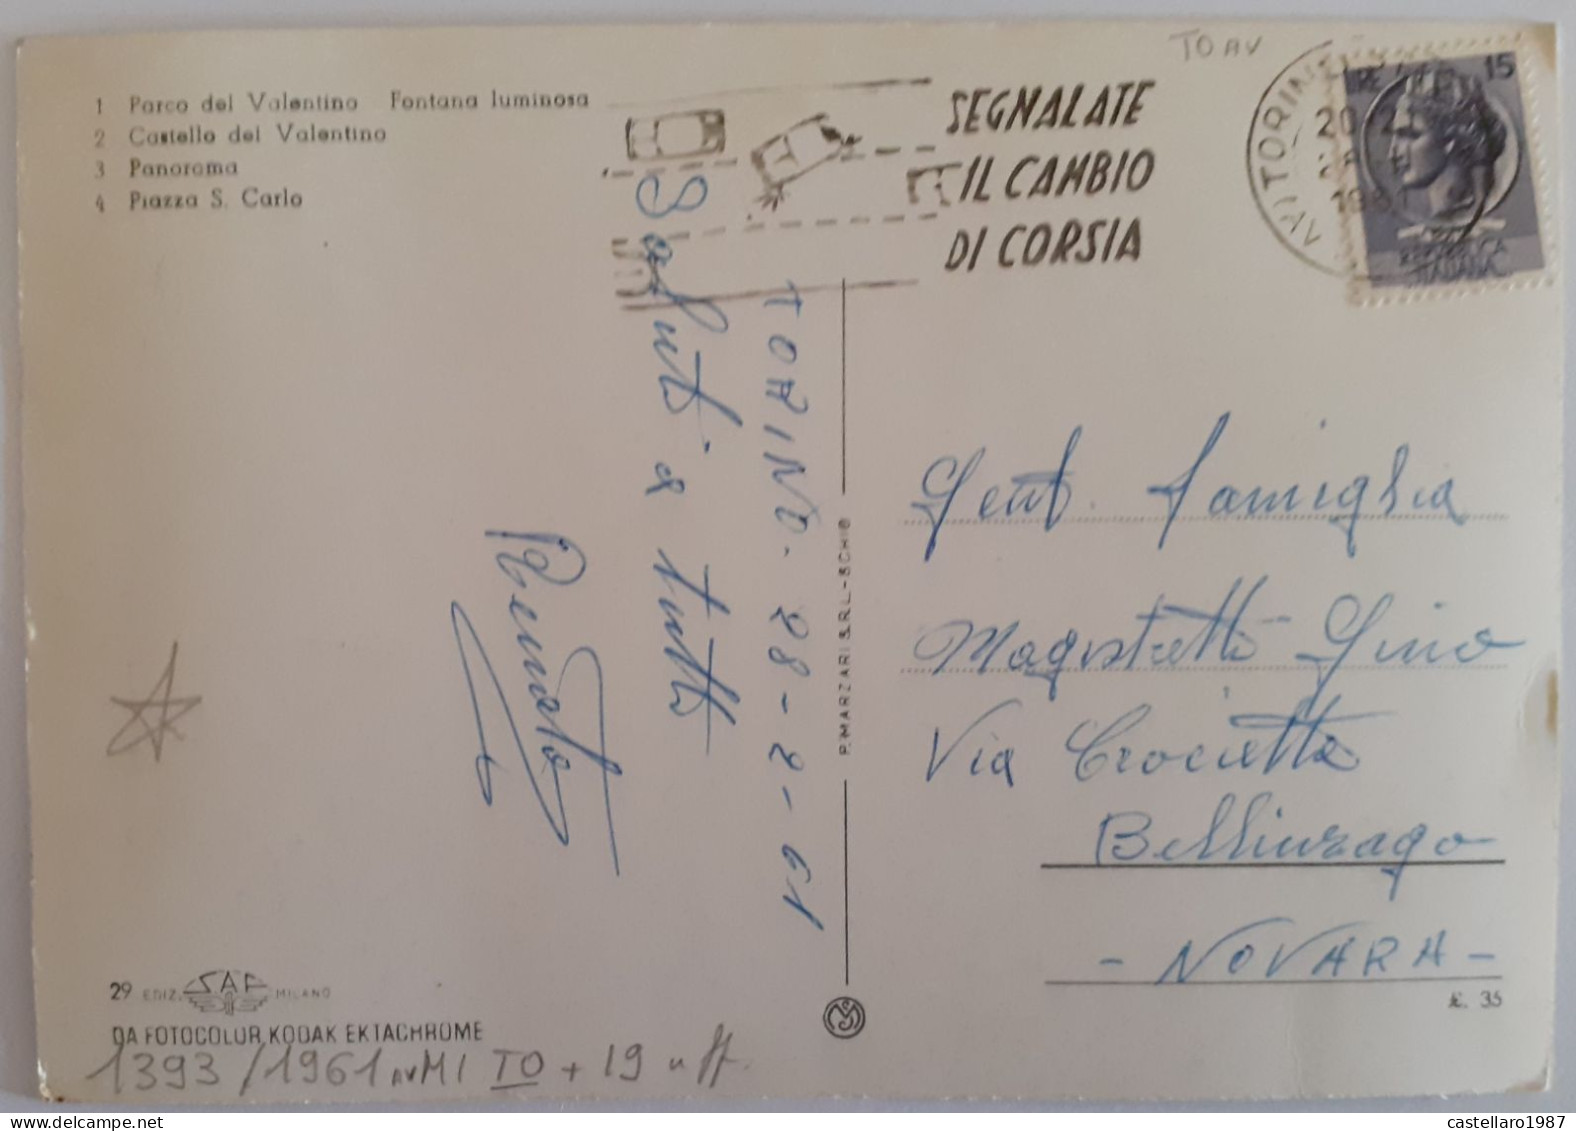 1 Parco del Valentino Fontana luminosa
2 Castello del Valentino
3 Panorama
4 Piazza S. Carlo
SEGNALATE
IL CAMBIO
DI CORSIA
TO AV
AVI TORINO
20
1961
LIRE 15
REPVBBLICA
ITALIANA
TORINO - 28-2-61
Saluti a tutti
Renato
P. MARZARI S.R.L. - SCHIO
Gent. Famiglia
Magistretti Gino
Via Crocetta
Bellinzago
- NOVARA -
£. 35
29 EDIZ. SAF MILANO
DA FOTOCOLOR KODAK EKTACHROME
1393/1961 AV MI TO + 19 uff.
castellaro1987